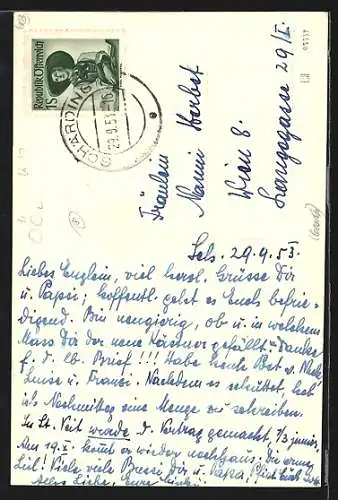 Republik Österreich
1S
SCHÄRDING
29.9.53
Fräulein
Wien 8.
Langegasse 29/I.
29.9.53.
Liebes Englein, viel herzl. Grüsse Dir
u. Papsi; hoffentl. geht es Euch befrie-
digend. Bin neugierig, ob u. in welchem
Mass Dir der neue Kästner gefällt. Danke
f. d. lb. Brief!!! Habe heute Post v.
Luise u. Franzi. Nachdem es schüttet, hab
ich Nachmittag eine Menge zu schreiben.
In St. Veit wurde d. Vortrag gemacht,
Am 19. kommt er wieder nachhaus; Die arme
Viele viele Bussi Dir u. Papsi,
Alles Liebe, Eure